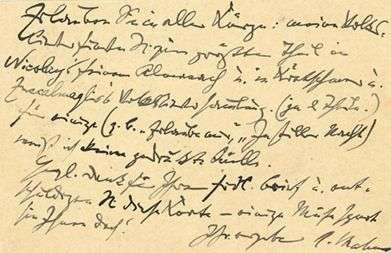 Erlauben Sie in aller Kürze: meine Volks-
lieder finden Sie zum größten Theil in
Nicolai's feinem Almanach u. in Kretzschmer u.
Zuccalmaglio's Volksliedersammlung. (2 Theile.)
für einige (z. b. „Erlaube mir", „In stiller Nacht)
weiß ich keine gedruckte Quelle.
Dank für Ihren frdl. Brief u. ent-
schuldigen Sie diese Karte – einige Mühe spart
sie Ihnen doch!
Ihr ergeb. J. Brahms